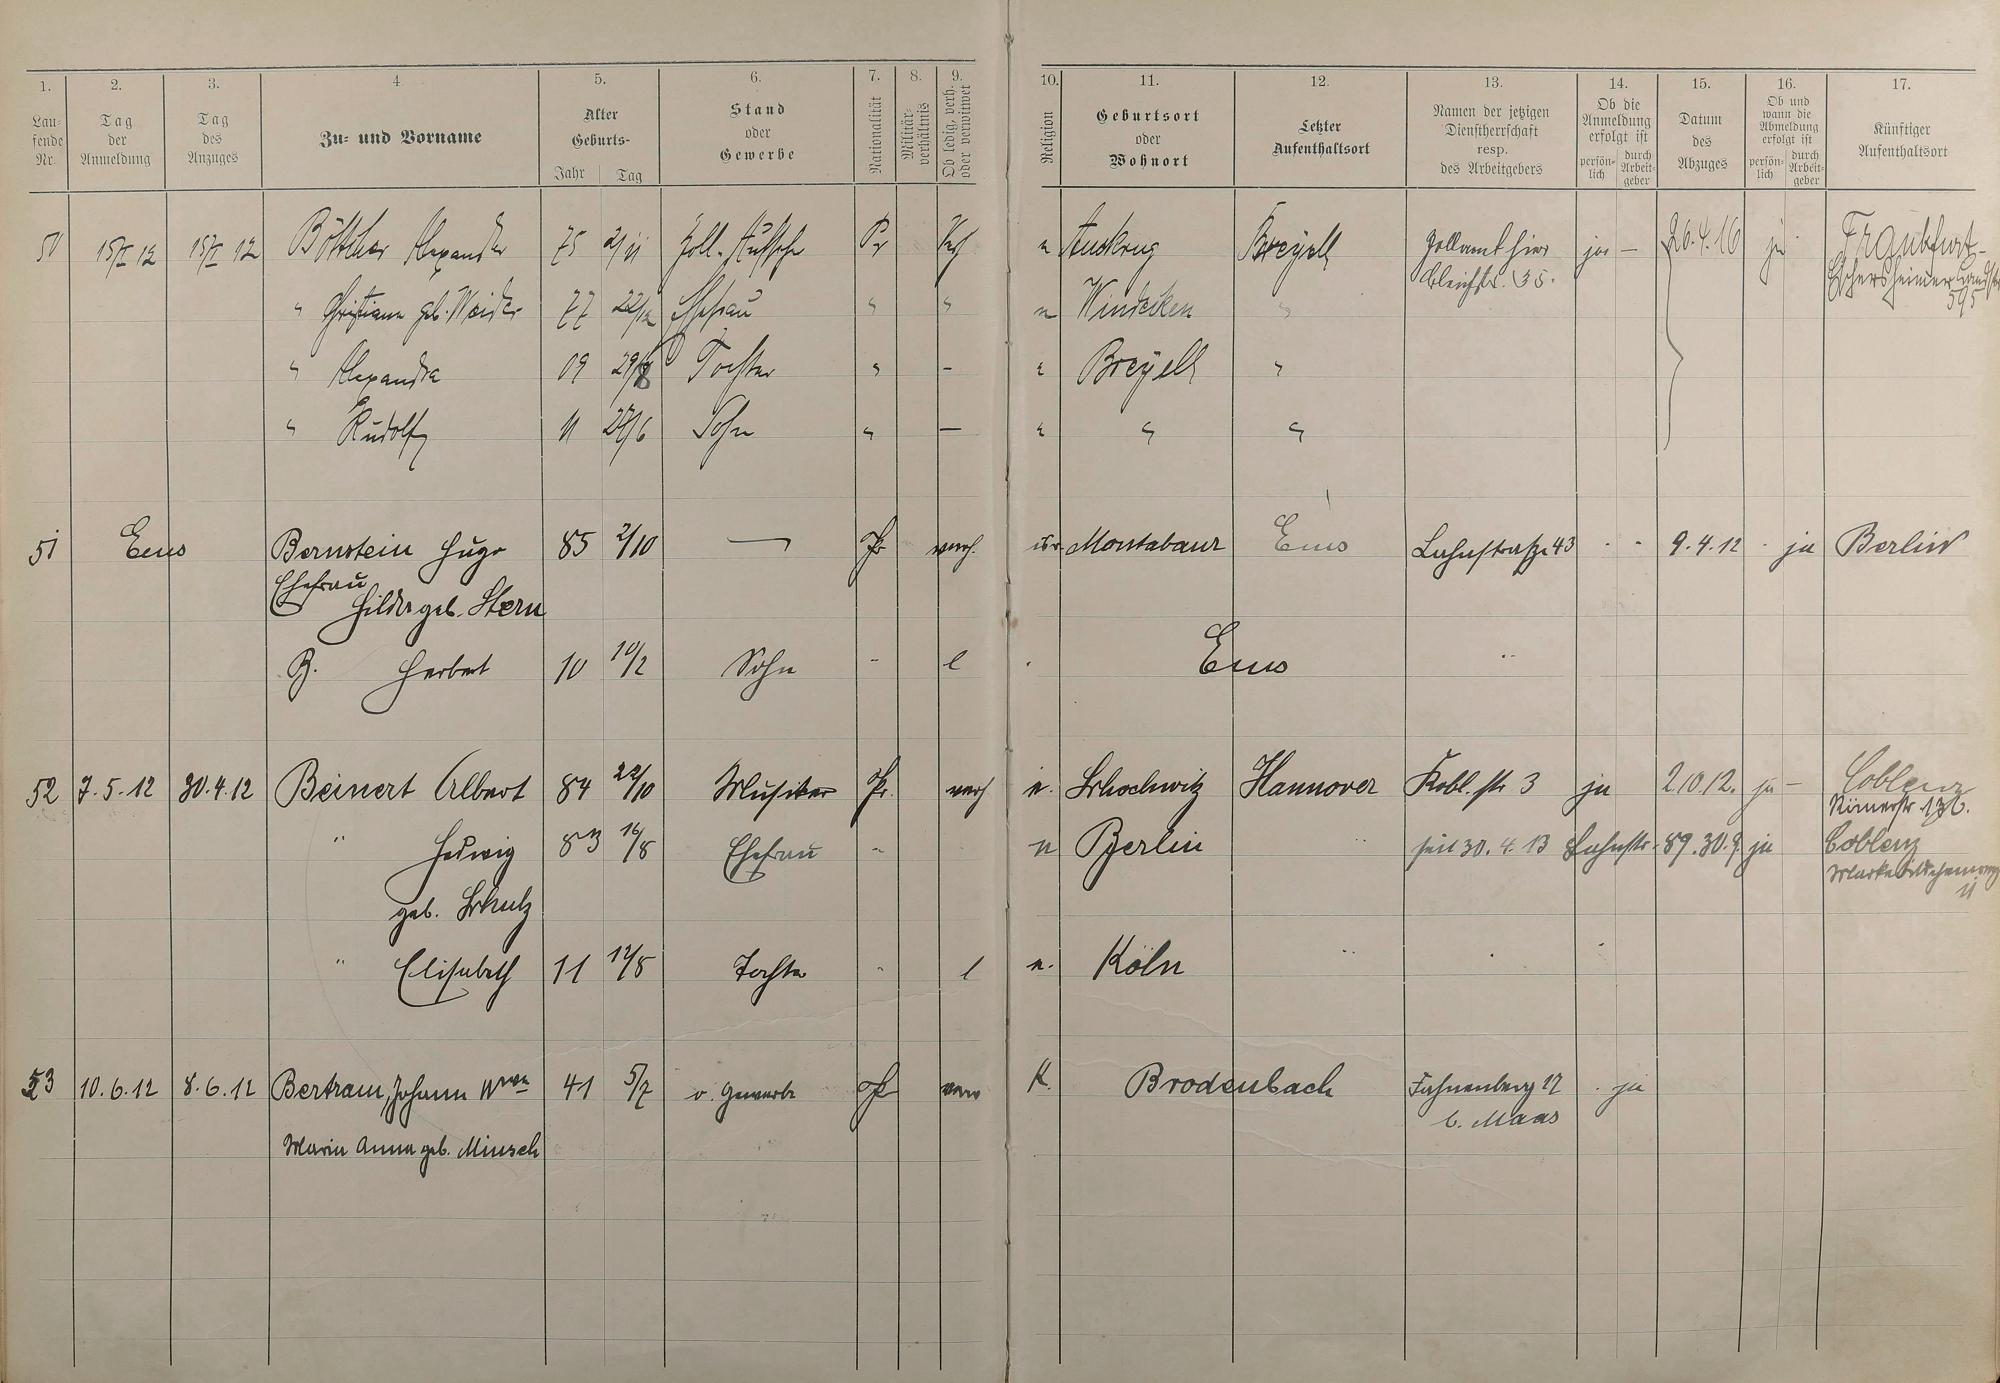 1. 2. 3. 4 5. 6. 7. 8. 9. 10. 11. 12. 13. 14. 15. 16. 17.
Lau-
fende
Nr.
Tag
der
Anmeldung
Tag
des
Anzuges
Zu- und Vorname
Alter
Geburts-
Jahr Tag
Stand
oder
Gewerbe
Nationalität
Militär-
verhältnis
Ob ledig, verh.
oder verwitwet
Religion
Geburtsort
oder
Wohnort
Letzter
Aufenthaltsort
Namen der jetzigen
Dienstherrschaft
resp.
des Arbeitgebers
Ob die
Anmeldung
erfolgt ist
persön-
lich
durch
Arbeit-
geber
Datum
des
Abzuges
Ob und
wann die
Abmeldung
erfolgt ist
persön-
lich
durch
Arbeit-
geber
Künftiger
Aufenthaltsort
50 15/I 12 15/I 12 Böttcher Alexander 75 2/11 Pr Breyell Zollamt hier ja — 26.4.16 ja Frankfurt-
Bleichstr. 35.
595
" Christiane geb. 77 22/12 Ehefrau " " Windecken "
" Alexandra 09 29/8 Tochter " - " Breyell "
" Rudolf 11 6 Sohn " — " " "
51 Ems Bernstein Hugo 85 2/10 — Pr verh. isr. Montabaur Ems Lahnstraße 43 9.4.12 ja Berlin
Ehefrau
Hilda geb. Stern
B. Herbert 10 10/2 Sohn " l Ems "
52 7.5.12 30.4.12 Beinert Albert 84 22/10 Musiker Pr. verh e. Schochwitz Hannover Kobl. str 3 ja 2.10.12. ja — Coblenz
Römerstr 136.
" Hedwig 83 16/8 Ehefrau " Berlin " seit 30.4.13 Lahnstr. 89. 30.9. ja Coblenz
geb. Schulz
" Elisabeth 11 12/8 Tochter " l e. Köln "
53 10.6.12 8.6.12 Bertram, Johann Wwe 41 5/7 o. Gewerbe Pr verw K. Brodenbach Fahnenberg 12 ja
b. Maas
Maria Anna geb. Minsch